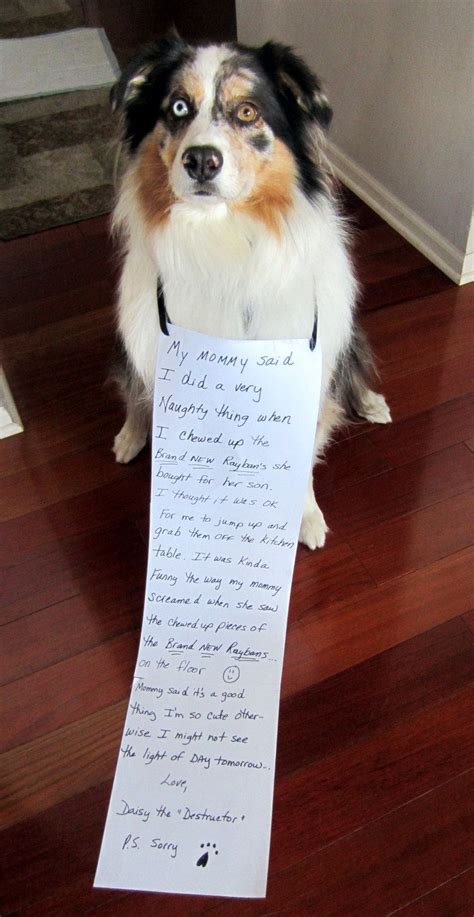 My Mommy said
I did a very
Naughty thing when
I chewed up the
Brand NEW Rayban's she
bought for her son.
I thought it was OK
For me to jump up and
grab them OFF the kitchen
table. It was kinda
Funny the way my mommy
screamed when she saw
the chewed up pieces of
the Brand NEW Raybans...
on the floor
Mommy said it's a good
thing I'm so cute other-
wise I might not see
the light of DAY tomorrow...
Love,
Daisy the "Destructor"
P.S. Sorry